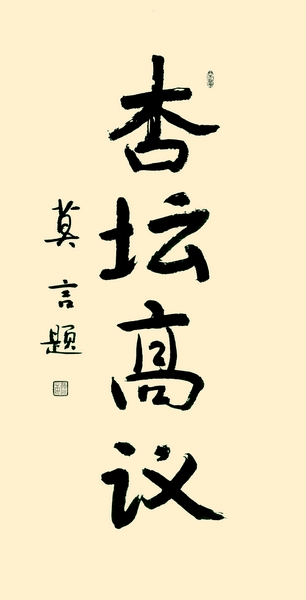 杏坛高议
莫言题